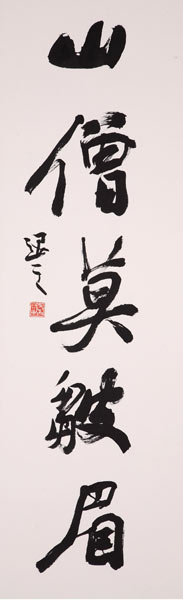 山僧莫皺眉